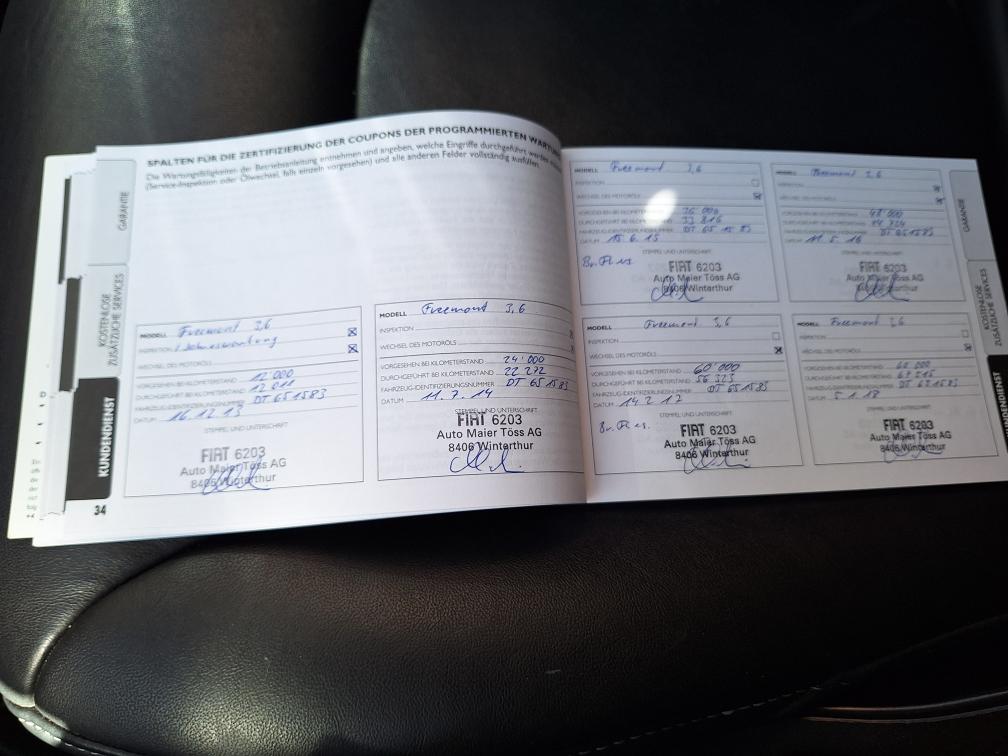 SPALTEN FÜR DIE ZERTIFIZIERUNG DER COUPONS DER PROGRAMMIERTEN WARTU
Die Wartungsfälligkeiten der Betriebsanleitung entnehmen und angeben, welche Eingriffe durchgeführt werden
(Service-Inspektion oder Ölwechsel, falls einzeln vorgesehen) und alle anderen Felder vollständig ausfüllen.
GARANTIE
KOSTENLOSE
ZUSÄTZLICHE SERVICES
KUNDENDIENST
34
MODELL Freemont 3,6
INSPEKTION / Jahreswartung
WECHSEL DES MOTORÖLS
VORGESEHEN BEI KILOMETERSTAND 12'000
DURCHGEFÜHRT BEI KILOMETERSTAND 12'011
FAHRZEUG-IDENTIFIZIERUNGSNUMMER DT 651583
DATUM 16.12.13
STEMPEL UND UNTERSCHRIFT
FIAT 6203
Auto Maier Töss AG
8406 Winterthur
MODELL Freemont 3,6
INSPEKTION
WECHSEL DES MOTORÖLS
VORGESEHEN BEI KILOMETERSTAND 24'000
DURCHGEFÜHRT BEI KILOMETERSTAND 22'272
FAHRZEUG-IDENTIFIZIERUNGSNUMMER DT 651583
DATUM 11.7.14
STEMPEL UND UNTERSCHRIFT
FIAT 6203
Auto Maier Töss AG
8406 Winterthur
MODELL Freemont 3,6
INSPEKTION
WECHSEL DES MOTORÖLS
VORGESEHEN BEI KILOMETERSTAND 36'000
DURCHGEFÜHRT BEI KILOMETERSTAND 33'816
FAHRZEUG-IDENTIFIZIERUNGSNUMMER DT 651583
DATUM 15.6.15
STEMPEL UND UNTERSCHRIFT
Br. Fl. es.
FIAT 6203
Auto Maier Töss AG
8406 Winterthur
MODELL Freemont 3,6
INSPEKTION
WECHSEL DES MOTORÖLS
VORGESEHEN BEI KILOMETERSTAND 48'000
DURCHGEFÜHRT BEI KILOMETERSTAND
FAHRZEUG-IDENTIFIZIERUNGSNUMMER DT 651583
DATUM 11.5.16
STEMPEL UND UNTERSCHRIFT
FIAT 6203
Auto Maier Töss AG
8406 Winterthur
MODELL Freemont 3,6
INSPEKTION
WECHSEL DES MOTORÖLS
VORGESEHEN BEI KILOMETERSTAND 60'000
DURCHGEFÜHRT BEI KILOMETERSTAND 56'323
FAHRZEUG-IDENTIFIZIERUNGSNUMMER DT 651583
DATUM 14.2.17
STEMPEL UND UNTERSCHRIFT
Br. Fl. es.
FIAT 6203
Auto Maier Töss AG
8406 Winterthur
MODELL Freemont 3,6
INSPEKTION
WECHSEL DES MOTORÖLS
VORGESEHEN BEI KILOMETERSTAND
DURCHGEFÜHRT BEI KILOMETERSTAND
FAHRZEUG-IDENTIFIZIERUNGSNUMMER DT 651583
DATUM 5.1.18
STEMPEL UND UNTERSCHRIFT
FIAT 6203
Auto Maier Töss AG
8406 Winterthur
GARANTIE
KOSTENLOSE
ZUSÄTZLICHE SERVICES
KUNDENDIENST